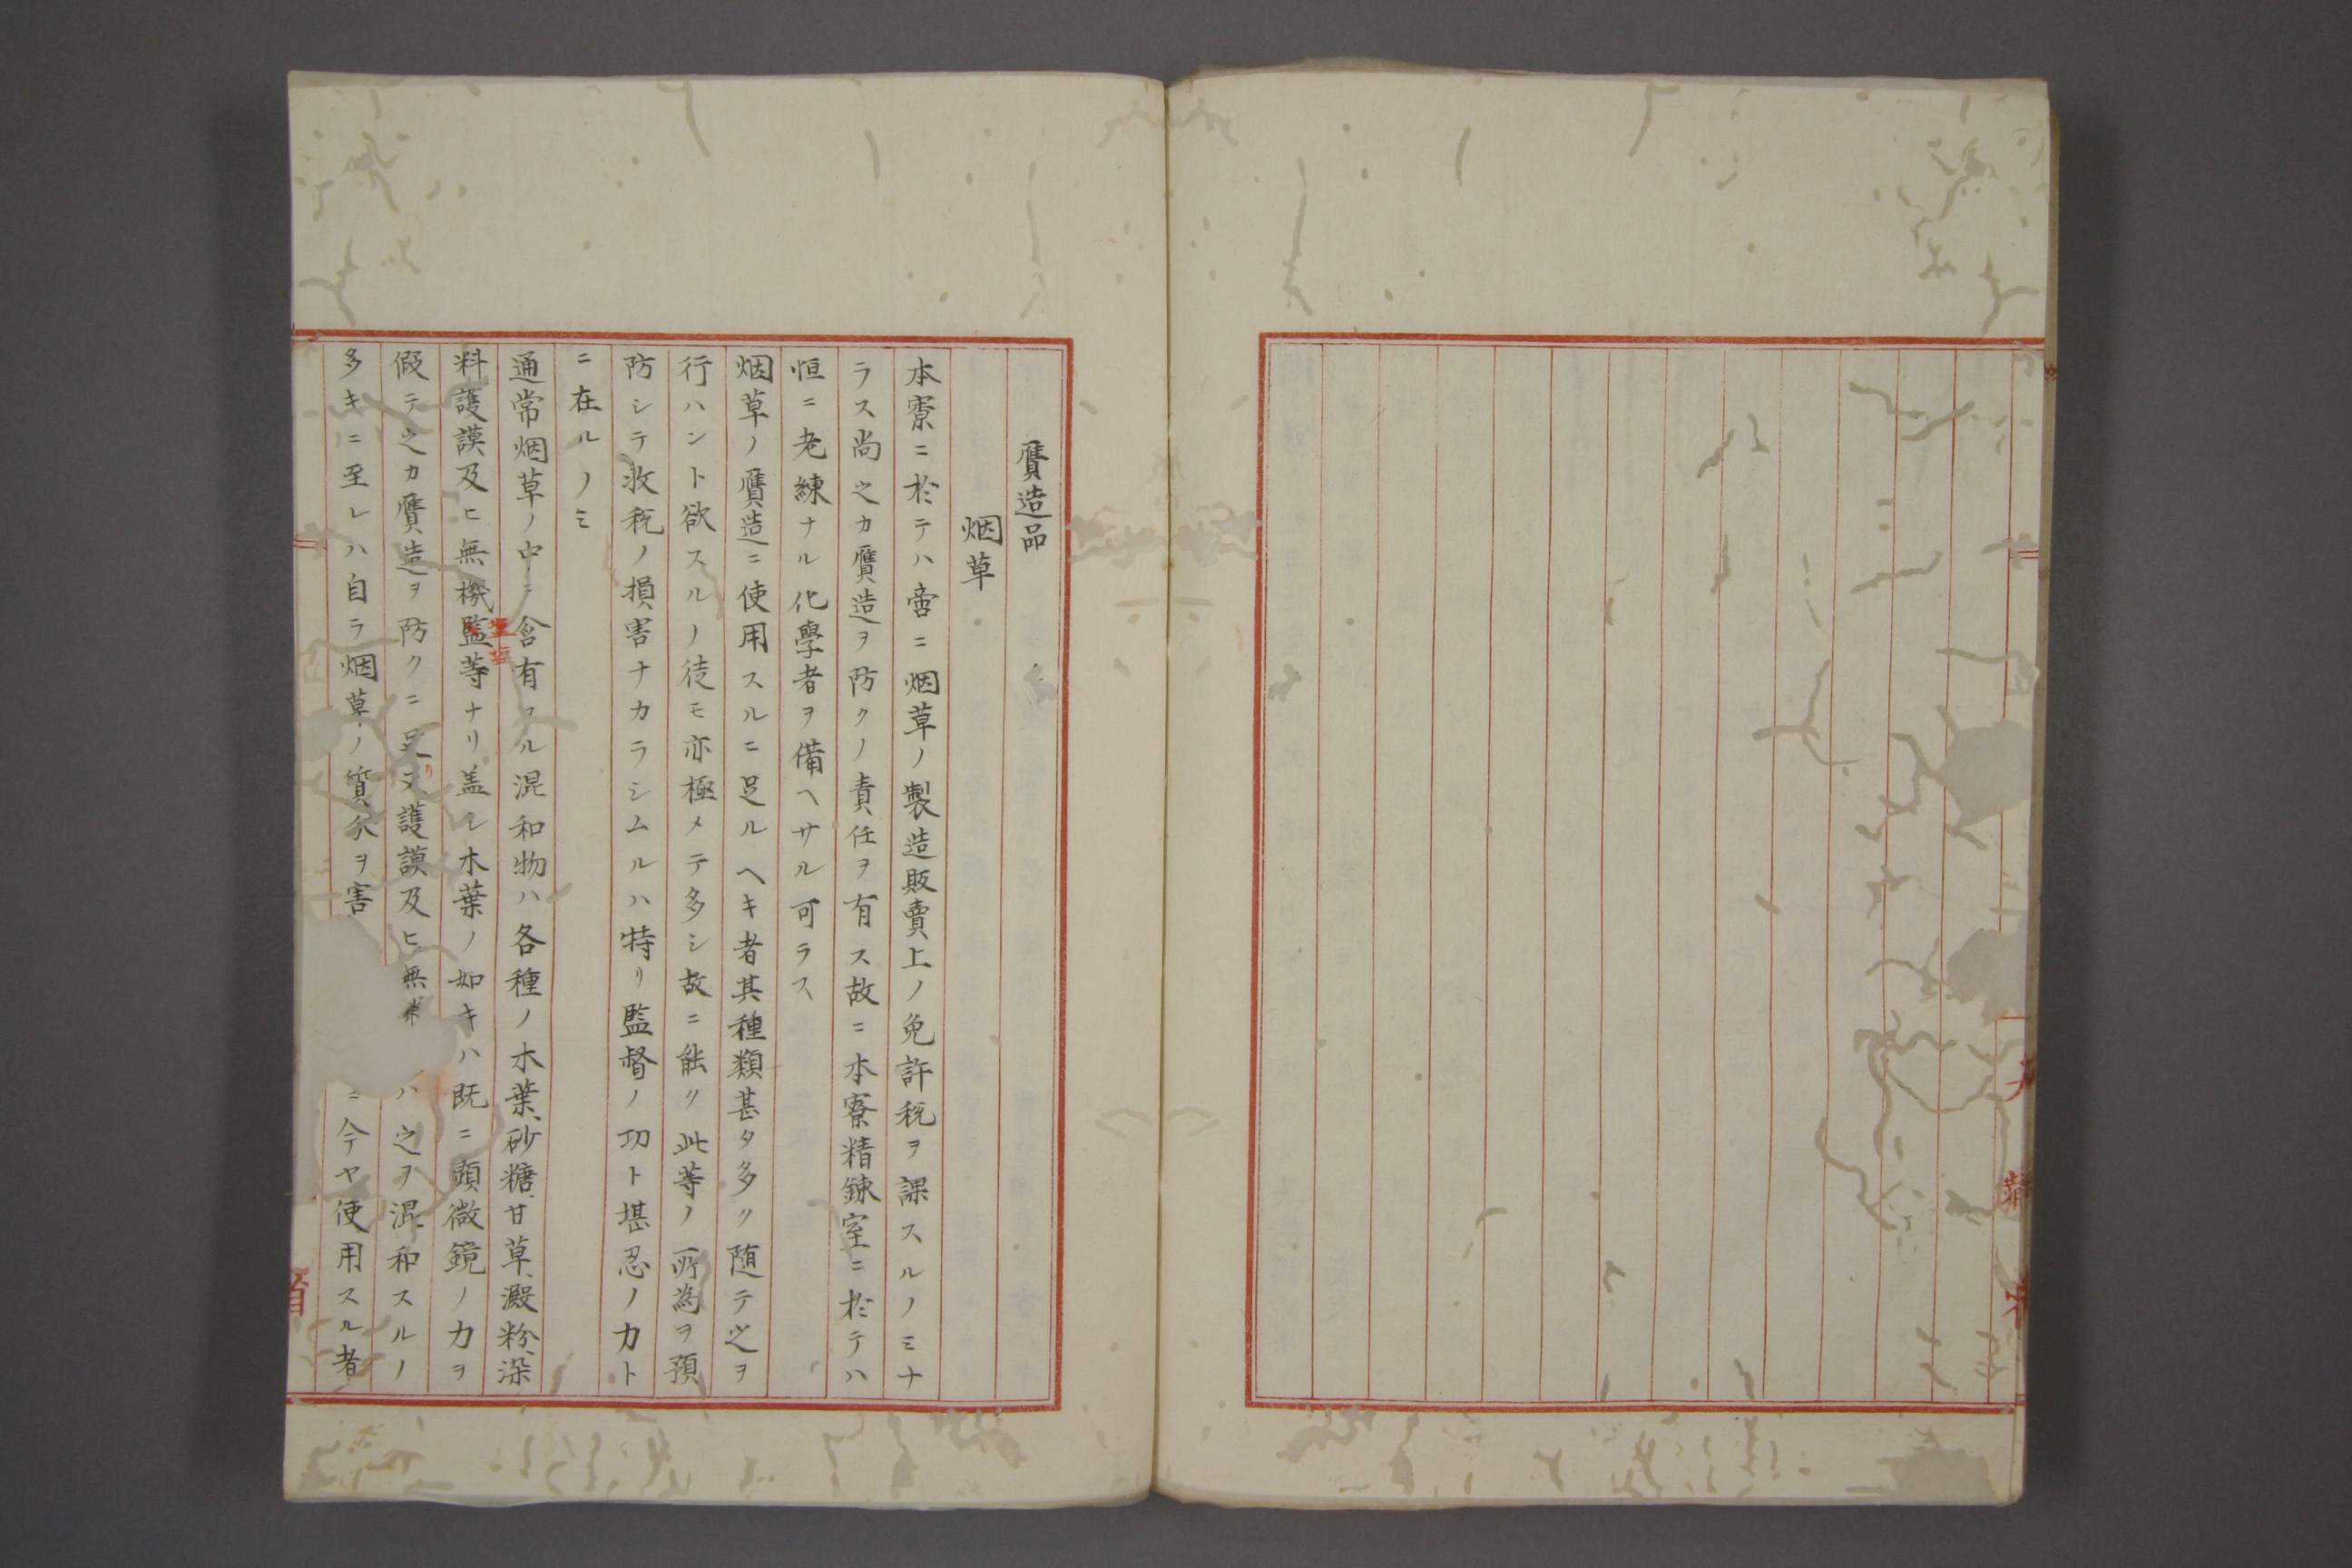 贋造品
烟草
本寮ニ於テハ啻ニ烟草ノ製造販賣上ノ免許税ヲ課スルノミナ
ラス尚之カ贋造ヲ防クノ責任ヲ有ス故ニ本寮精錬室ニ於テハ
恒ニ老練ナル化學者ヲ備ヘサル可ラス
烟草ノ贋造ニ使用スルニ足ルヘキ者其種類甚タ多ク随テ之ヲ
行ハント欲スルノ徒モ亦極メテ多シ故ニ能ク此等ノ所為ヲ預
防シテ收税ノ損害ナカラシムルハ特リ監督ノ功ト堪忍ノ力ト
ニ在ルノミ
通常烟草ノ中ニ含有スル混和物ハ各種ノ木葉、砂糖、甘草、澱粉、染
料護謨及ヒ無機監等ナリ盖シ木葉ノ如キハ既ニ顕微鏡ノ力ヲ
假テ之カ贋造ヲ防クニ足ヲ護謨及ヒ無 ハ之ヲ混和スルノ
多キニ至レハ自ラ烟草ノ質分ヲ害 ニ今ヤ使用スル者
省